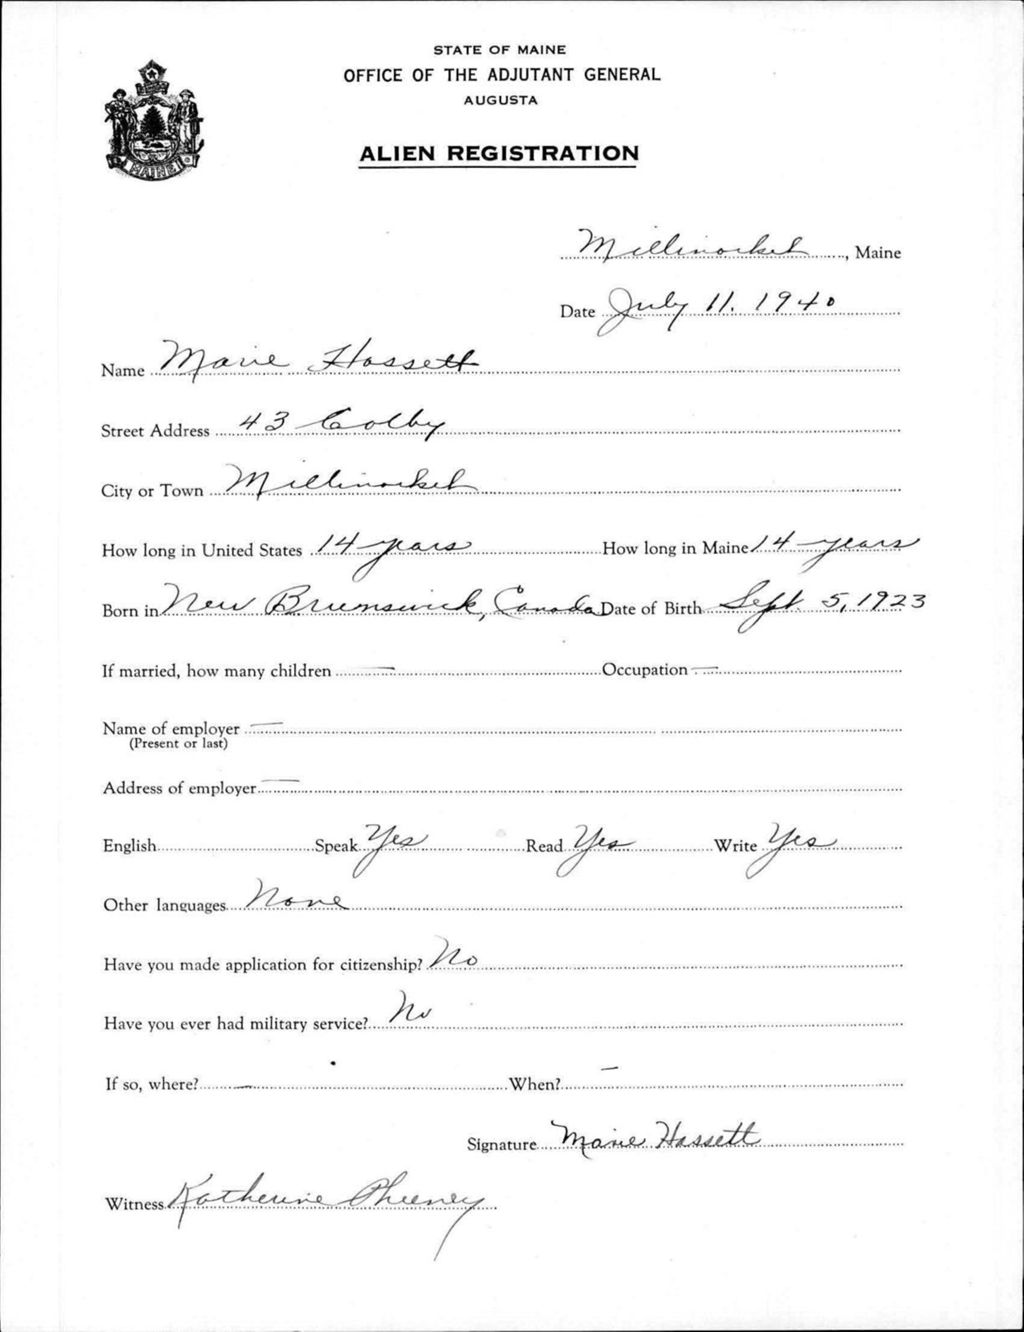 STATE OF MAINE
OFFICE OF THE ADJUTANT GENERAL
AUGUSTA
ALIEN REGISTRATION
MAINE
Millinocket, Maine
Date July 11. 1940
Name Marie Hassett
Street Address 43 Colby
City or Town Millinocket
How long in United States 14 years How long in Maine 14 years
Born in New Brunswick, Canada Date of Birth Sept 5, 1923
If married, how many children — Occupation —
Name of employer —
(Present or last)
Address of employer —
English Speak Yes Read Yes Write Yes
Other languages None
Have you made application for citizenship? No
Have you ever had military service? No
If so, where? — When? —
Signature Marie Hassett
Witness Katherine Pheeney